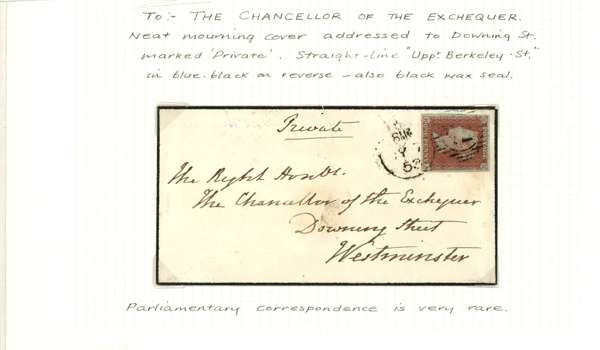 To:- THE CHANCELLOR OF THE EXCHEQUER.
Neat mourning cover addressed to Downing St.
marked 'Private'. Straight-line "Uppr Berkeley-St."
in blue-black on reverse - also black wax seal.
Private
The Right Honble.
The Chancellor of the Exchequer
Downing Street
Westminster
Parliamentary correspondence is very rare.